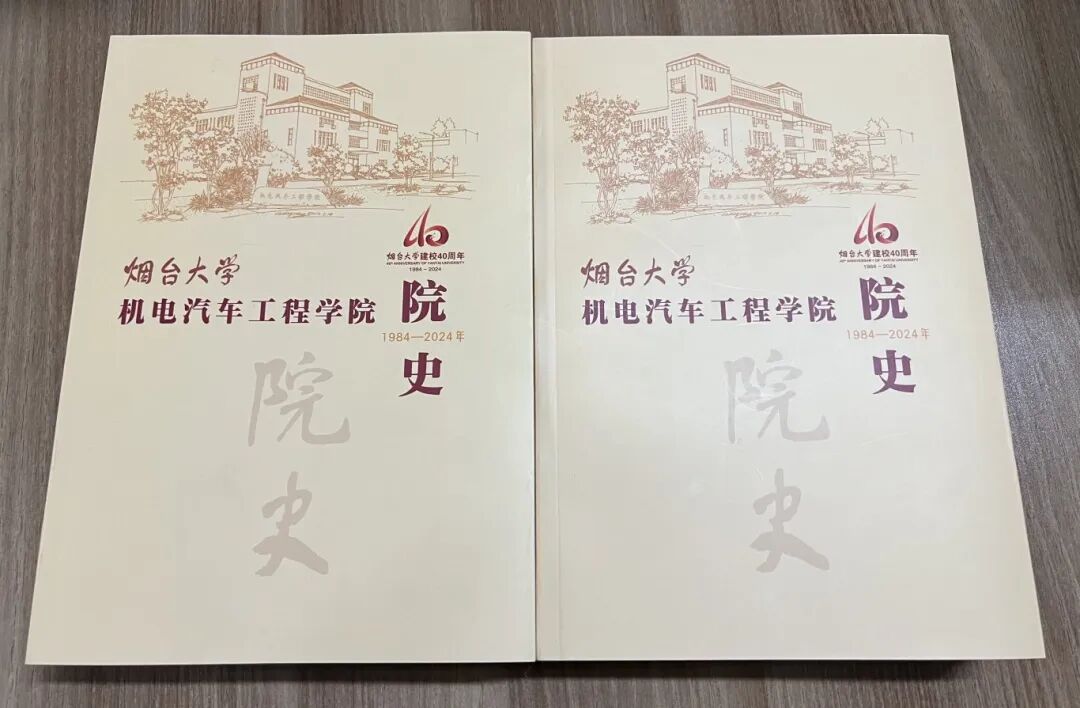 机电汽车工程学院
烟台大学建校40周年
40TH ANNIVERSARY OF YANTAI UNIVERSITY
1984-2024
烟台大学
机电汽车工程学院
院史
1984—2024年
院史
机电汽车工程学院
烟台大学建校40周年
40TH ANNIVERSARY OF YANTAI UNIVERSITY
1984-2024
烟台大学
机电汽车工程学院
院史
1984—2024年
院史